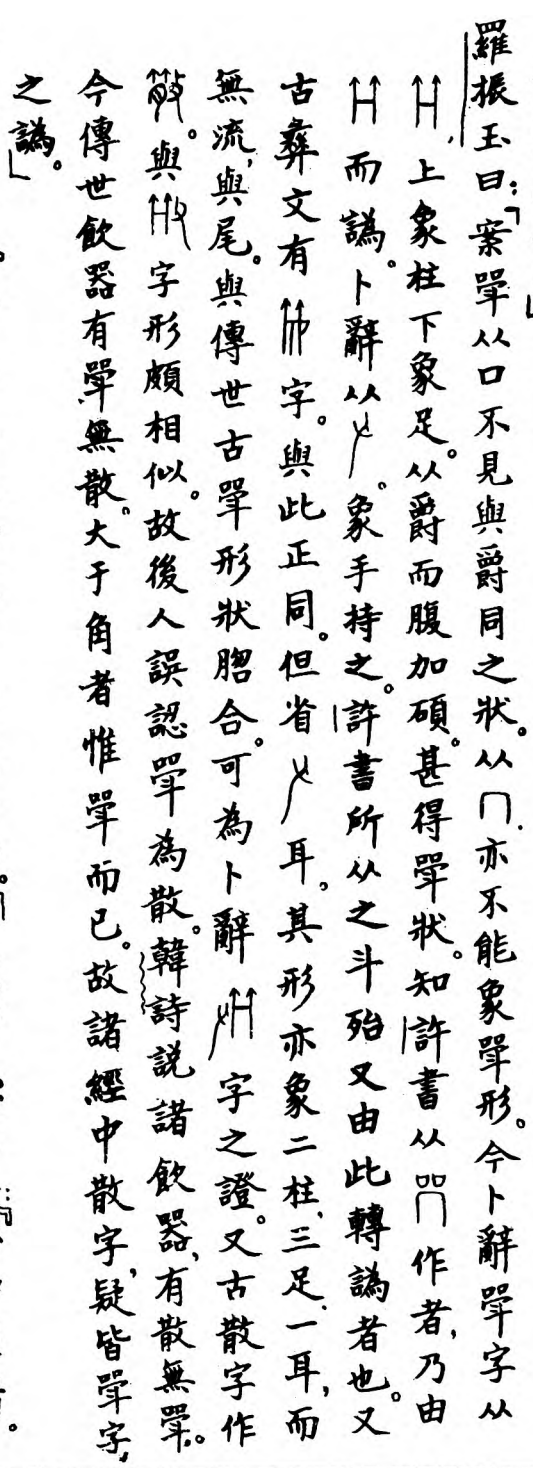 羅振玉曰：「案斝从口不見與爵同之狀。从冂，亦不能象斝形。今卜辭斝字从
，上象柱下象足。从爵而腹加碩。甚得斝狀。知許書从吅冂作者，乃由
而譌。卜辭从。象手持之。許書所从之斗殆又由此轉譌者也。又
古彝文有字。與此正同。但省耳。其形亦象二柱、三足、一耳，而
無流與尾。與傳世古斝形狀脗合。可為卜辭字之證。又古散字作
。與字形頗相似。故後人誤認斝為散。韓詩說諸飲器，有散無斝。
今傳世飲器有斝無散。大于角者惟斝而已。故諸經中散字，疑皆斝字
之譌。」